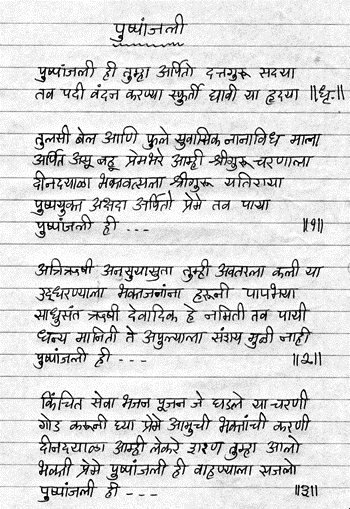 पुष्पांजली
पुष्पांजली ही तुम्हा अर्पितो दत्तगुरू सदया
तव पदी वंदन करण्या स्फुर्ती द्यावी या हृदया ॥धृ.॥
तुलसी बेल आणि फुले सुवासिक नानाविध माला
अर्पित असू बहू प्रेमभरे आम्ही श्रीगुरू चरणाला
दीनदयाळा भक्तवत्सला श्रीगुरू यतिराया
पुष्पयुक्त अक्षदा अर्पितो प्रेमे तव पाया
पुष्पांजली ही --- ॥१॥
अत्रिऋषी अनसुयासुता तुम्ही अवतरला कली या
उद्धरण्याला भक्तजनांना हरूनी पापभया
साधुसंत ऋषी देवादिक हे नमिती तव पायी
धन्य मानिती ते अपुल्याला संशय मुळी नाही
पुष्पांजली ही --- ॥२॥
किंचित सेवा भजन पूजन जे घडले या चरणी
गोड करूनी घ्या प्रेमे आमुची भक्तांची करणी
दीनदयाळा आम्ही लेकरे शरण तुम्हा आलो
भक्ती प्रेमे पुष्पांजली ही वाहण्याला सजलो
पुष्पांजली ही --- ॥३॥